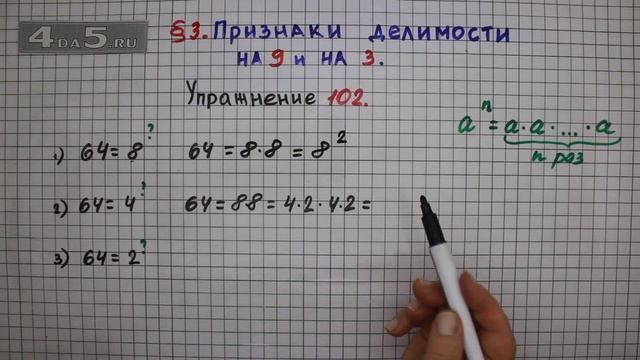 4DA5.RU
§3. Признаки делимости
на 9 и на 3.
Упражнение 102.
aⁿ = a·a·...·a
n раз
1) 64 = 8^? 64 = 8·8 = 8²
2) 64 = 4^? 64 = 8·8 = 4·2·4·2 =
3) 64 = 2^?